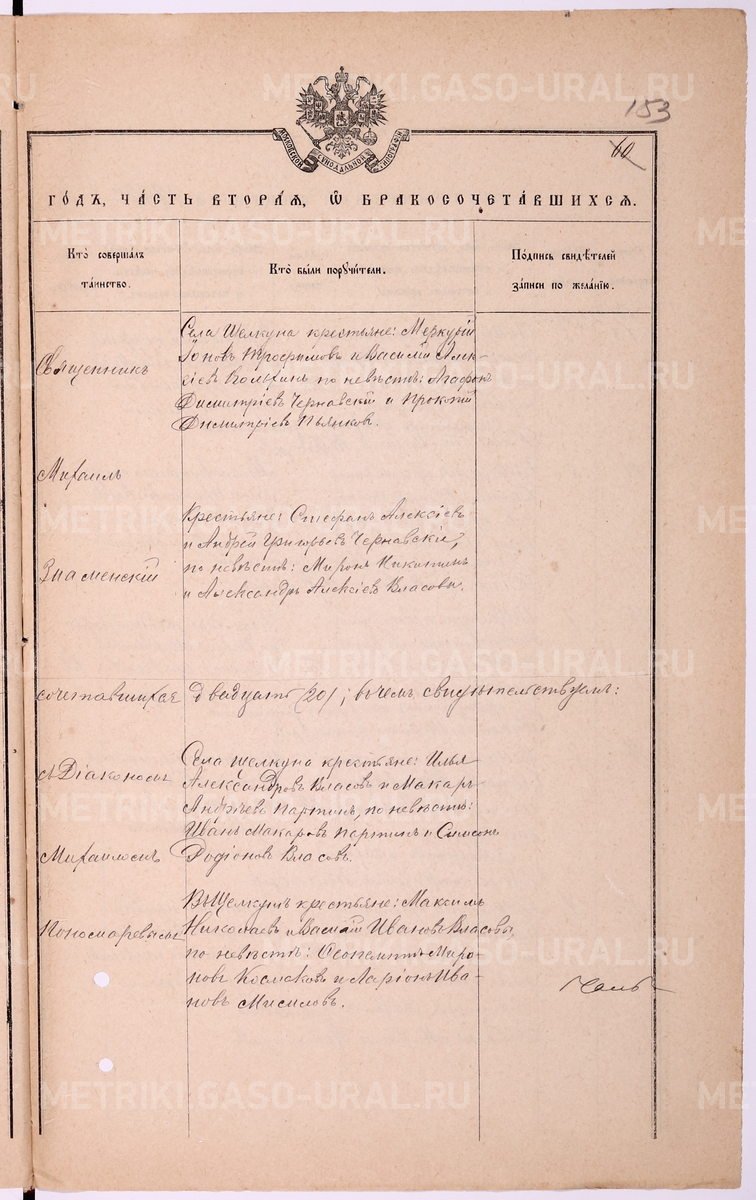 153
60
ДУХОВНОЙ СѴНОДАЛЬНОЙ ТИПОГРАФІИ
ГОДЪ, ЧАСТЬ ВТОРАЯ, Ѡ БРАКОСОЧЕТАВШИХСЯ.
Кто совершалъ
таинство.
Кто были поручители.
Подпись свидѣтелей
записи по желанію.
Священникъ
Михаилъ
Знаменскій
Села Щелкуна крестьяне: Меркурій
Іоновъ Трофимовъ и Василій Алек-
сіевъ по невѣстѣ: Агафонъ
Димитріевъ Чернавскій и Прокопій
Димитріевъ Пьянковъ.
Крестьяне: Стефанъ Алексіевъ
и Андрей Григорьевъ Чернавскіе,
по невѣстѣ: Миронъ Никитинъ
и Александръ Алексіевъ Власовы.
сочетавшихся двадцать (20); въ чемъ свидѣтельствуемъ:
съ Діакономъ
Михаиломъ
Пономаревымъ
Села Щелкуна крестьяне: Илья
Александровъ Власовъ и Макаръ
Андреевъ Партинъ, по невѣстѣ:
Иванъ Макаровъ Партинъ и Симеонъ
Родіоновъ Власовъ.
крестьяне: Максимъ
Николаевъ и Василій Ивановъ Власовы,
по невѣстѣ: Миро-
новъ и Ларіонъ Ива-
новъ
METRIKI.GASO-URAL.RU